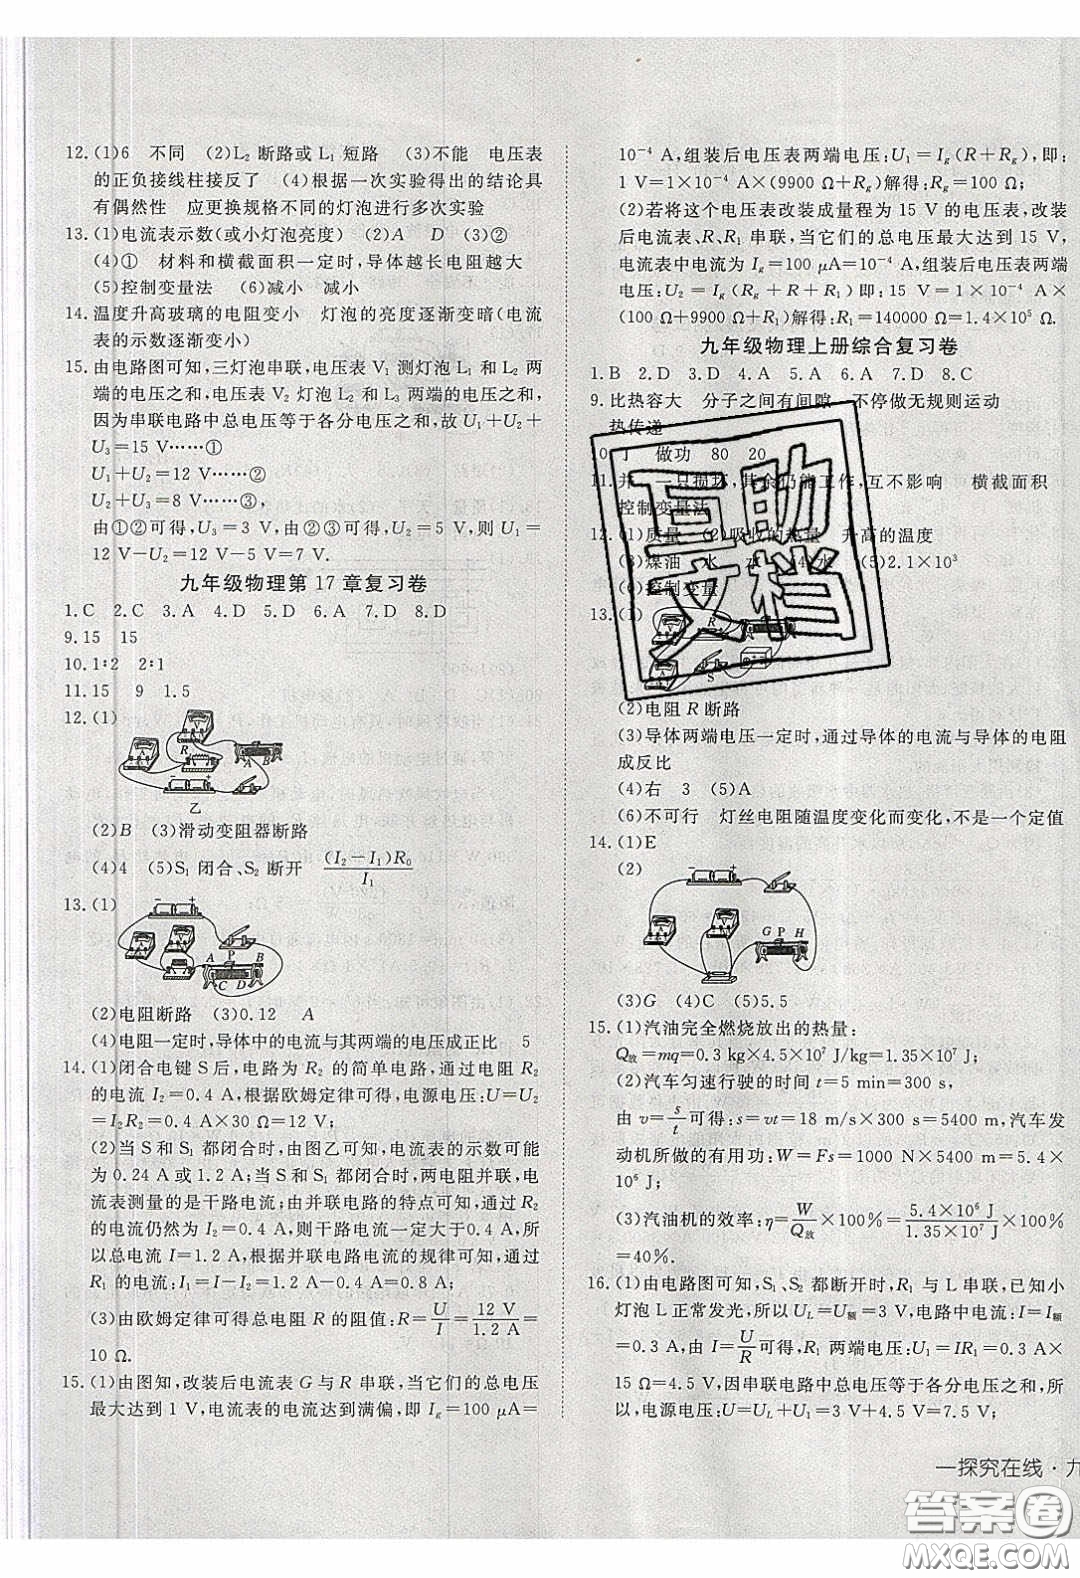 12.(1)6　不同　(2)L₂ 断路或 L₁ 短路　(3)不能　电压表
的正负接线柱接反了　(4)根据一次实验得出的结论具
有偶然性　应更换规格不同的灯泡进行多次实验
13.(1)电流表示数(或小灯泡亮度)　(2)A　D　(3)②
(4)①　材料和横截面积一定时,导体越长电阻越大
(5)控制变量法　(6)减小　减小
14.温度升高玻璃的电阻变小　灯泡的亮度逐渐变暗(电流
表的示数逐渐变小)
15.由电路图可知,三灯泡串联,电压表 V₁ 测灯泡 L₁ 和 L₂ 两
端的电压之和,电压表 V₂ 测灯泡 L₂ 和 L₃ 两端的电压之和,
因为串联电路中总电压等于各分电压之和,故 U₁+U₂+
U₃=15 V……①
U₁+U₂=12 V……②
U₂+U₃=8 V……③
由①②可得,U₃=3 V,由②③可得,U₂=5 V,则 U₁=
12 V−U₂=12 V−5 V=7 V.
九年级物理第 17 章复习卷
1.C　2.C　3.A　4.D　5.D　6.D　7.D　8.D
9.15　15
10.1∶2　2∶1
11.15　9　1.5
12.(1)
R₁
A B
乙
(2)B　(3)滑动变阻器断路
(4)4　(5)S₁ 闭合、S₂ 断开　(I₂−I₁)R₀/I₁
13.(1)
A P B
C D
(2)电阻断路　(3)0.12　A
(4)电阻一定时,导体中的电流与其两端的电压成正比　5
14.(1)闭合电键 S 后,电路为 R₂ 的简单电路,通过电阻 R₂
的电流 I₂=0.4 A,根据欧姆定律可得,电源电压:U=U₂
=I₂R₂=0.4 A×30 Ω=12 V;
(2)当 S 和 S₁ 都闭合时,由图乙可知,电流表的示数可能
为 0.24 A 或 1.2 A;当 S 和 S₁ 都闭合时,两电阻并联,电
流表测量的是干路电流;由并联电路的特点可知,通过 R₂
的电流仍然为 I₂=0.4 A,则干路电流一定大于0.4 A,所
以总电流 I=1.2 A,根据并联电路电流的规律可知,通过
R₁ 的电流:I₁=I−I₂=1.2 A−0.4 A=0.8 A;
(3)由欧姆定律可得总电阻 R 的阻值:R=U/I=12 V/1.2 A=
10 Ω.
15.(1)由图知,改装后电流表 G 与 R 串联,当它们的总电压
最大达到 1 V,电流表的电流达到满偏,即 I_g=100 μA=
10⁻⁴ A,组装后电压表两端电压:U₁=I_g(R+R_g),即:
1 V=1×10⁻⁴ A×(9900 Ω+R_g)解得:R_g=100 Ω;
(2)若将这个电压表改装成量程为 15 V 的电压表,改装
后电流表、R、R₁ 串联,当它们的总电压最大达到 15 V,
电流表中电流为 I_g=100 μA=10⁻⁴ A,组装后电压表两端
电压:U₂=I_g(R_g+R+R₁),即:15 V=1×10⁻⁴ A×
(100 Ω+9900 Ω+R₁)解得:R₁=140000 Ω=1.4×10⁵ Ω.
九年级物理上册综合复习卷
1.B　2.D　3.D　4.A　5.A　6.A　7.D　8.C
9.比热容大　分子之间有间隙　不停做无规则运动
热传递
10.丁　做功　80　20
11.并　一只损坏,其余仍能工作,互不影响　横截面积
控制变量法
12.(1)质量　(2)吸收的热量　升高的温度
(3)煤油　水　水　(4)水　(5)2.1×10³
(6)控制变量
13.(1)
R
S
(2)电阻 R 断路
(3)导体两端电压一定时,通过导体的电流与导体的电阻
成反比
(4)右　3　(5)A
(6)不可行　灯丝电阻随温度变化而变化,不是一个定值
14.(1)E
(2)
G P H
(3)G　(4)C　(5)5.5
15.(1)汽油完全燃烧放出的热量:
Q放=mq=0.3 kg×4.5×10⁷ J/kg=1.35×10⁷ J;
(2)汽车匀速行驶的时间 t=5 min=300 s,
由 v=s/t可得:s=vt=18 m/s×300 s=5400 m,汽车发
动机所做的有用功:W=Fs=1000 N×5400 m=5.4×
10⁶ J;
(3)汽油机的效率:η=W/Q放×100%=5.4×10⁶ J/1.35×10⁷ J×100%
=40%.
16.(1)由电路图可知,S₁、S₂ 都断开时,R₁ 与 L 串联,已知小
灯泡 L 正常发光,所以 U_L=U额=3 V,电路中电流:I=I额
=0.3 A,由I=U/R可得,R₁ 两端电压:U₁=IR₁=0.3 A×
15 Ω=4.5 V,因串联电路中总电压等于各分电压之和,所
以,电源电压:U=U_L+U₁=3 V+4.5 V=7.5 V;
一探究在线·九
互助
文档
答案卷
MXQE.COM